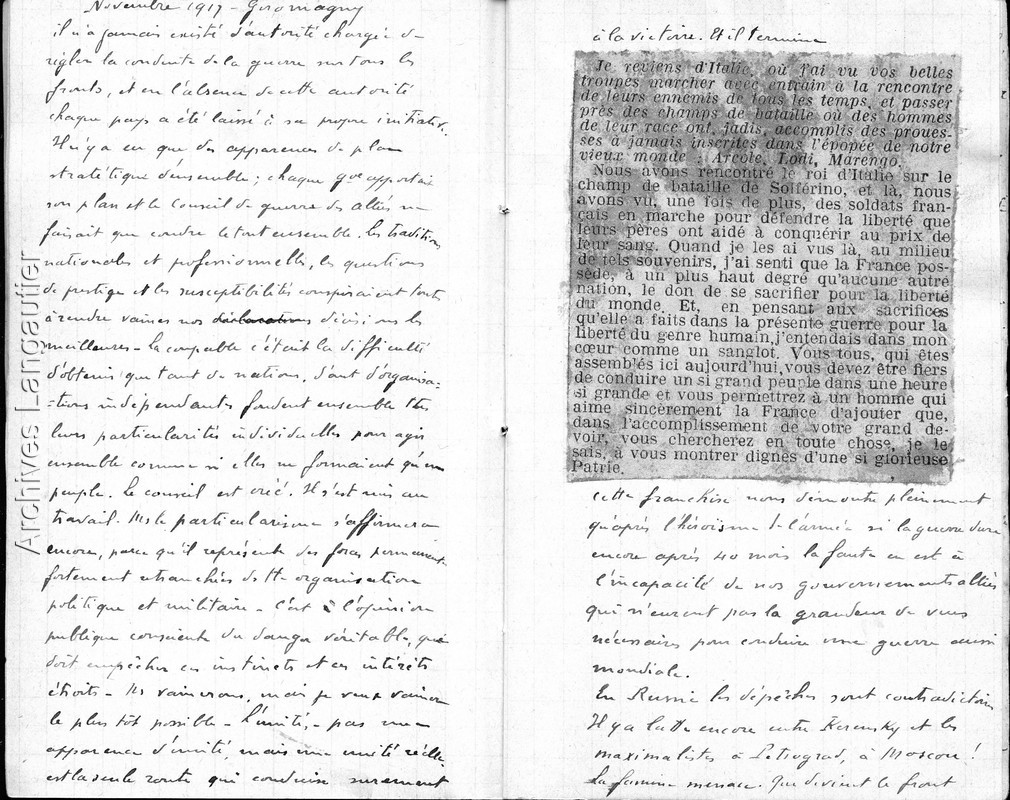 Novembre 1917 - Giromagny
il n'a jamais existé d'autorité chargée de
régler la conduite de la guerre sur tous les
fronts, et en l'absence de cette autorité
chaque pays a été laissé à sa propre initiative.
Il n'y a eu que des apparences de plan
stratétique d'ensemble ; chaque apportait
son plan et le conseil de guerre des alliés ne
faisait que coudre le tout ensemble. les traditions
nationales et professionnelles, les questions
de prestige et les susceptibilités conspiraient toutes
à rendre vaines nos décisions les
meilleures - La coupable c'était la difficulté
d'obtenir que tant de nations, tant d'organisa-
-tions indépendantes fondent ensemble ttes
leurs particularités individuelles pour agir
ensemble comme si elles ne formaient qu'un
peuple. Le conseil est créé. Il s'est mis au
travail. Ms le particularisme s'affirmera
encore, parce qu'il représente des forces permanentes
fortement retranchées ds tte organisation
politique et militaire - C'est à l'opinion
publique consciente du danger véritable, que
doit empêcher ces instincts et ces intérêts
étroits - Ns vaincrons, mais je veux vaincre
le plus tôt possible - L'unité, - pas une
apparence d'unité, mais une unité réelle,
est la seule route qui conduise surement
à la victoire. Et il termine
Je reviens d'Italie, où j'ai vu vos belles
troupes marcher avec entrain à la rencontre
de leurs ennemis de tous les temps, et passer
près des champs de bataille où des hommes
de leur race ont, jadis, accomplis des proues-
ses à jamais inscrites dans l'épopée de notre
vieux monde : Arcole, Lodi, Marengo.
Nous avons rencontré le roi d'Italie sur le
champ de bataille de Solférino, et là, nous
avons vu, une fois de plus, des soldats fran-
çais en marche pour défendre la liberté que
leurs pères ont aidé à conquérir au prix de
leur sang. Quand je les ai vus là, au milieu
de tels souvenirs, j'ai senti que la France pos-
sède, à un plus haut degré qu'aucune autre
nation, le don de se sacrifier pour la liberté
du monde. Et, en pensant aux sacrifices
qu'elle a faits dans la présente guerre pour la
liberté du genre humain, j'entendais dans mon
cœur comme un sanglot. Vous tous, qui êtes
assemblés ici aujourd'hui, vous devez être fiers
de conduire un si grand peuple dans une heure
si grande et vous permettrez à un homme qui
aime sincèrement la France d'ajouter que,
dans l'accomplissement de votre grand de-
voir, vous chercherez en toute chose, je le
sais, à vous montrer dignes d'une si glorieuse
Patrie.
Cette franchise nous démontre pleinement
qu'après l'héroïsme de l'armée si la guerre dure
encore après 40 mois la faute en est à
l'incapacité de nos gouvernements alliés
qui n'eurent pas la grandeur de vues
nécessaires pour conduire une guerre aussi
mondiale.
En Russie les dépêches sont contradictoires
Il y a lutte encore entre Kerensky et les
maximalistes à Petrograd, à Moscou !
La famine menace. Que devient le front
Archives Langautier